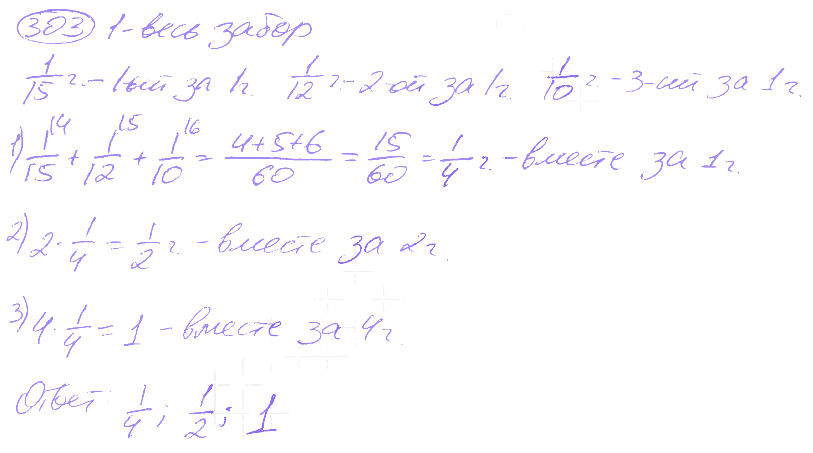 303 1-весь забор
1/15 г. - 1-ый за 1г. 1/12 г. - 2-ой за 1г. 1/10 г. - 3-ий за 1г.
1) 1/15 + 1/12 + 1/10 = (4+5+6)/60 = 15/60 = 1/4 г. - вместе за 1г.
2) 2 · 1/4 = 1/2 г. - вместе за 2г.
3) 4 · 1/4 = 1 - вместе за 4г.
Ответ 1/4; 1/2; 1